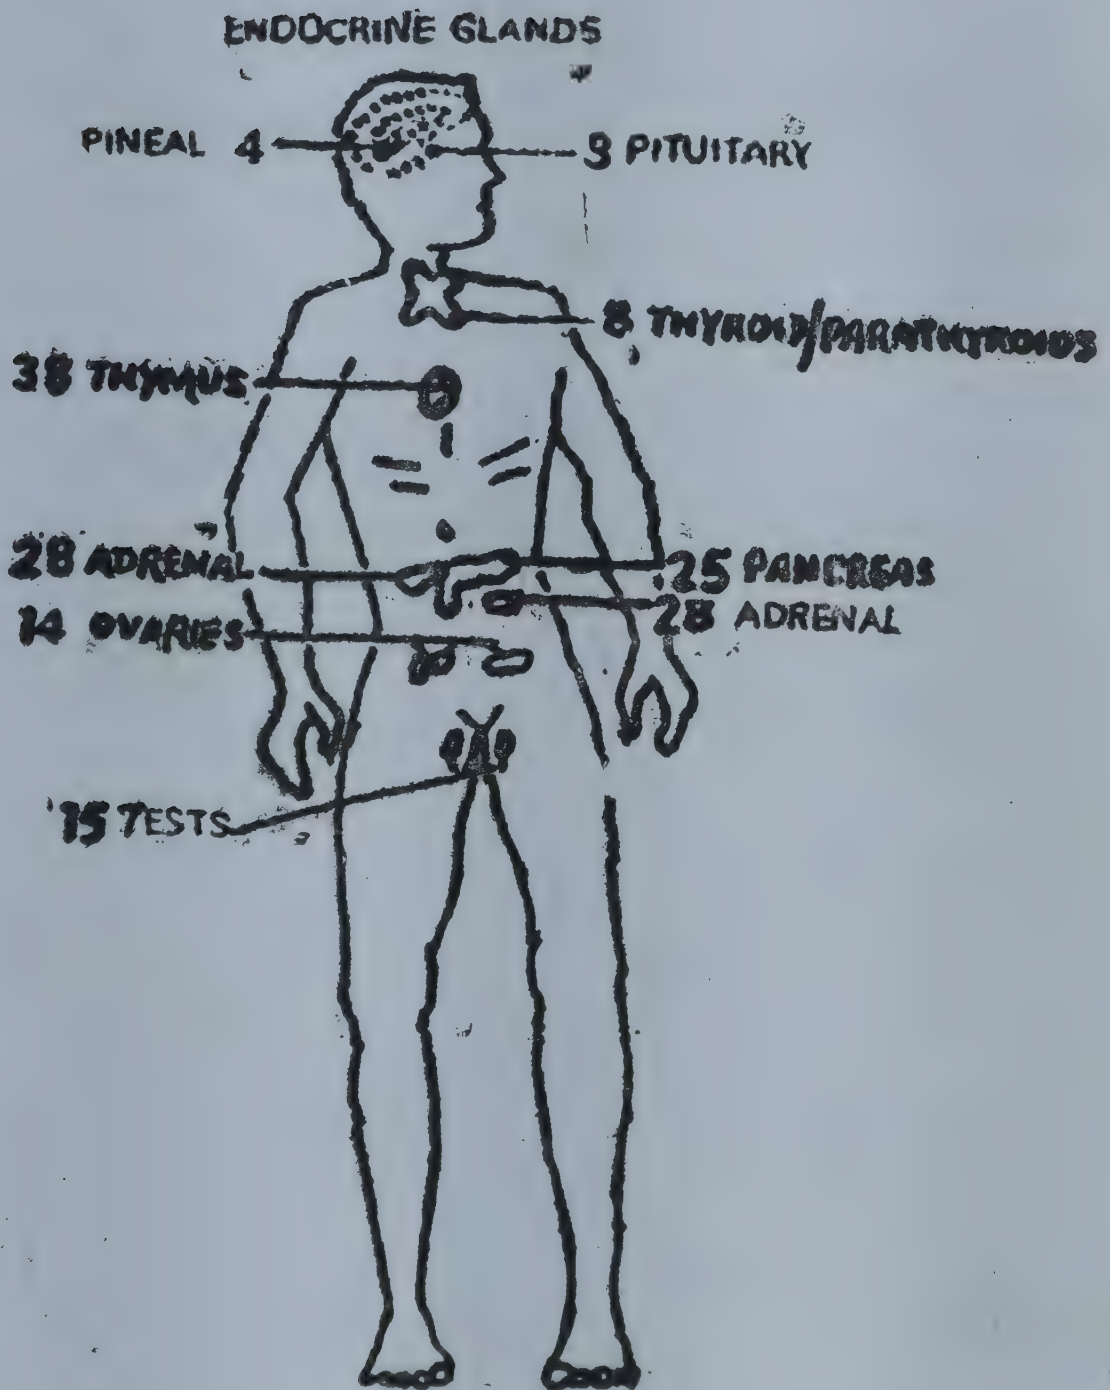 ENDOCRINE GLANDS
PINEAL 4
9 PITUITARY
8 THYROID/PARATHYROIDS
38 THYMUS
28 ADRENAL
25 PANCREAS
14 OVARIES
28 ADRENAL
15 TESTS